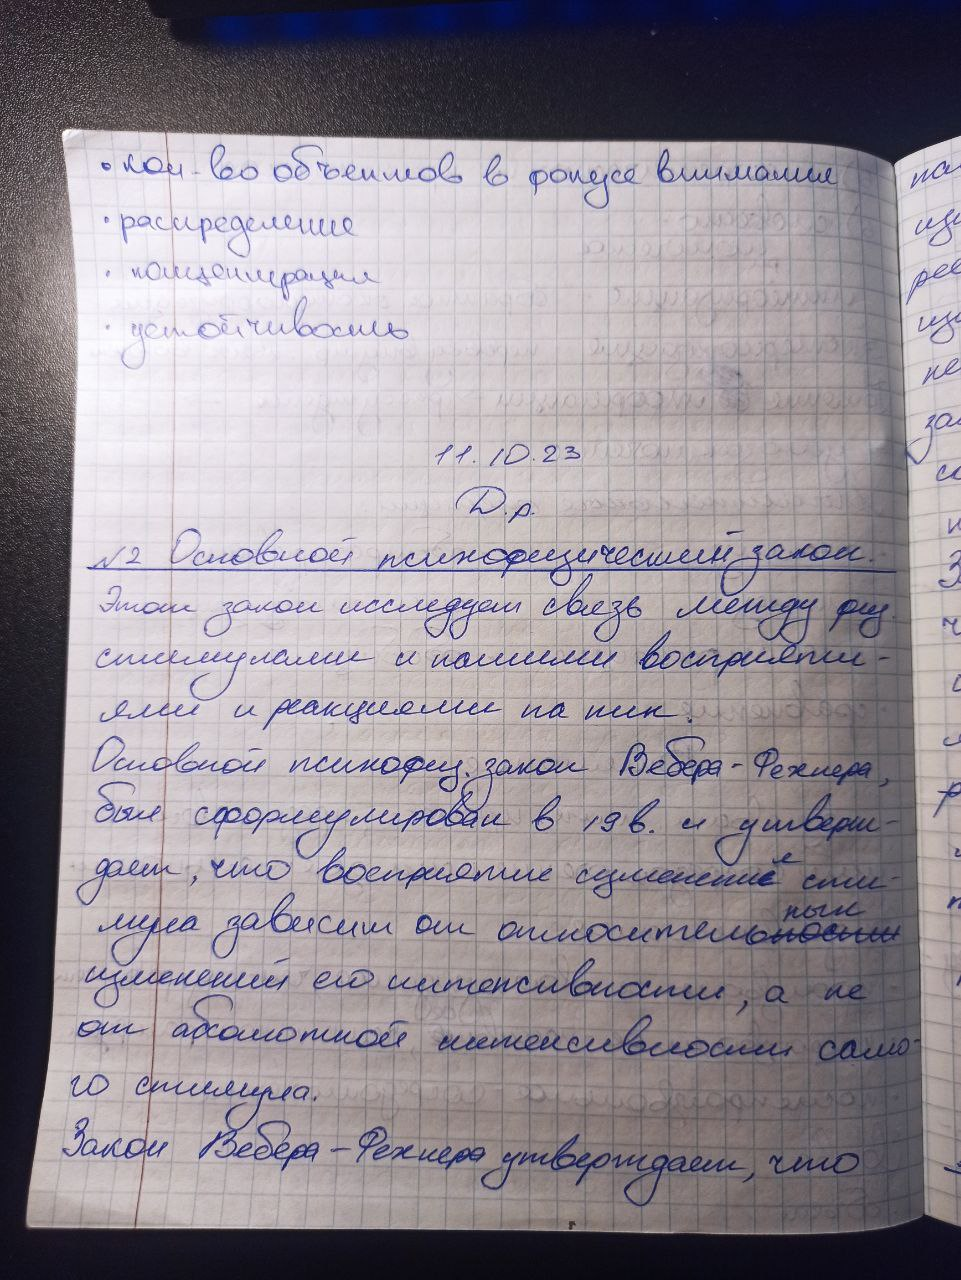 • кол-во объектов в фокусе внимания
• распределение
• концентрация
• устойчивость
11.10.23
Д.р.
№2 Основной психофизический закон.
Этот закон исследует связь между физ.
стимулами и нашими восприяти-
ями и реакциями на них.
Основной психофиз. закон Вебера-Фехнера,
был сформулирован в 19 в. и утверж-
дает, что восприятие изменения сти-
мула зависит от относительных
изменений его интенсивности, а не
от абсолютной интенсивности само-
го стимула.
Закон Вебера-Фехнера утверждает, что